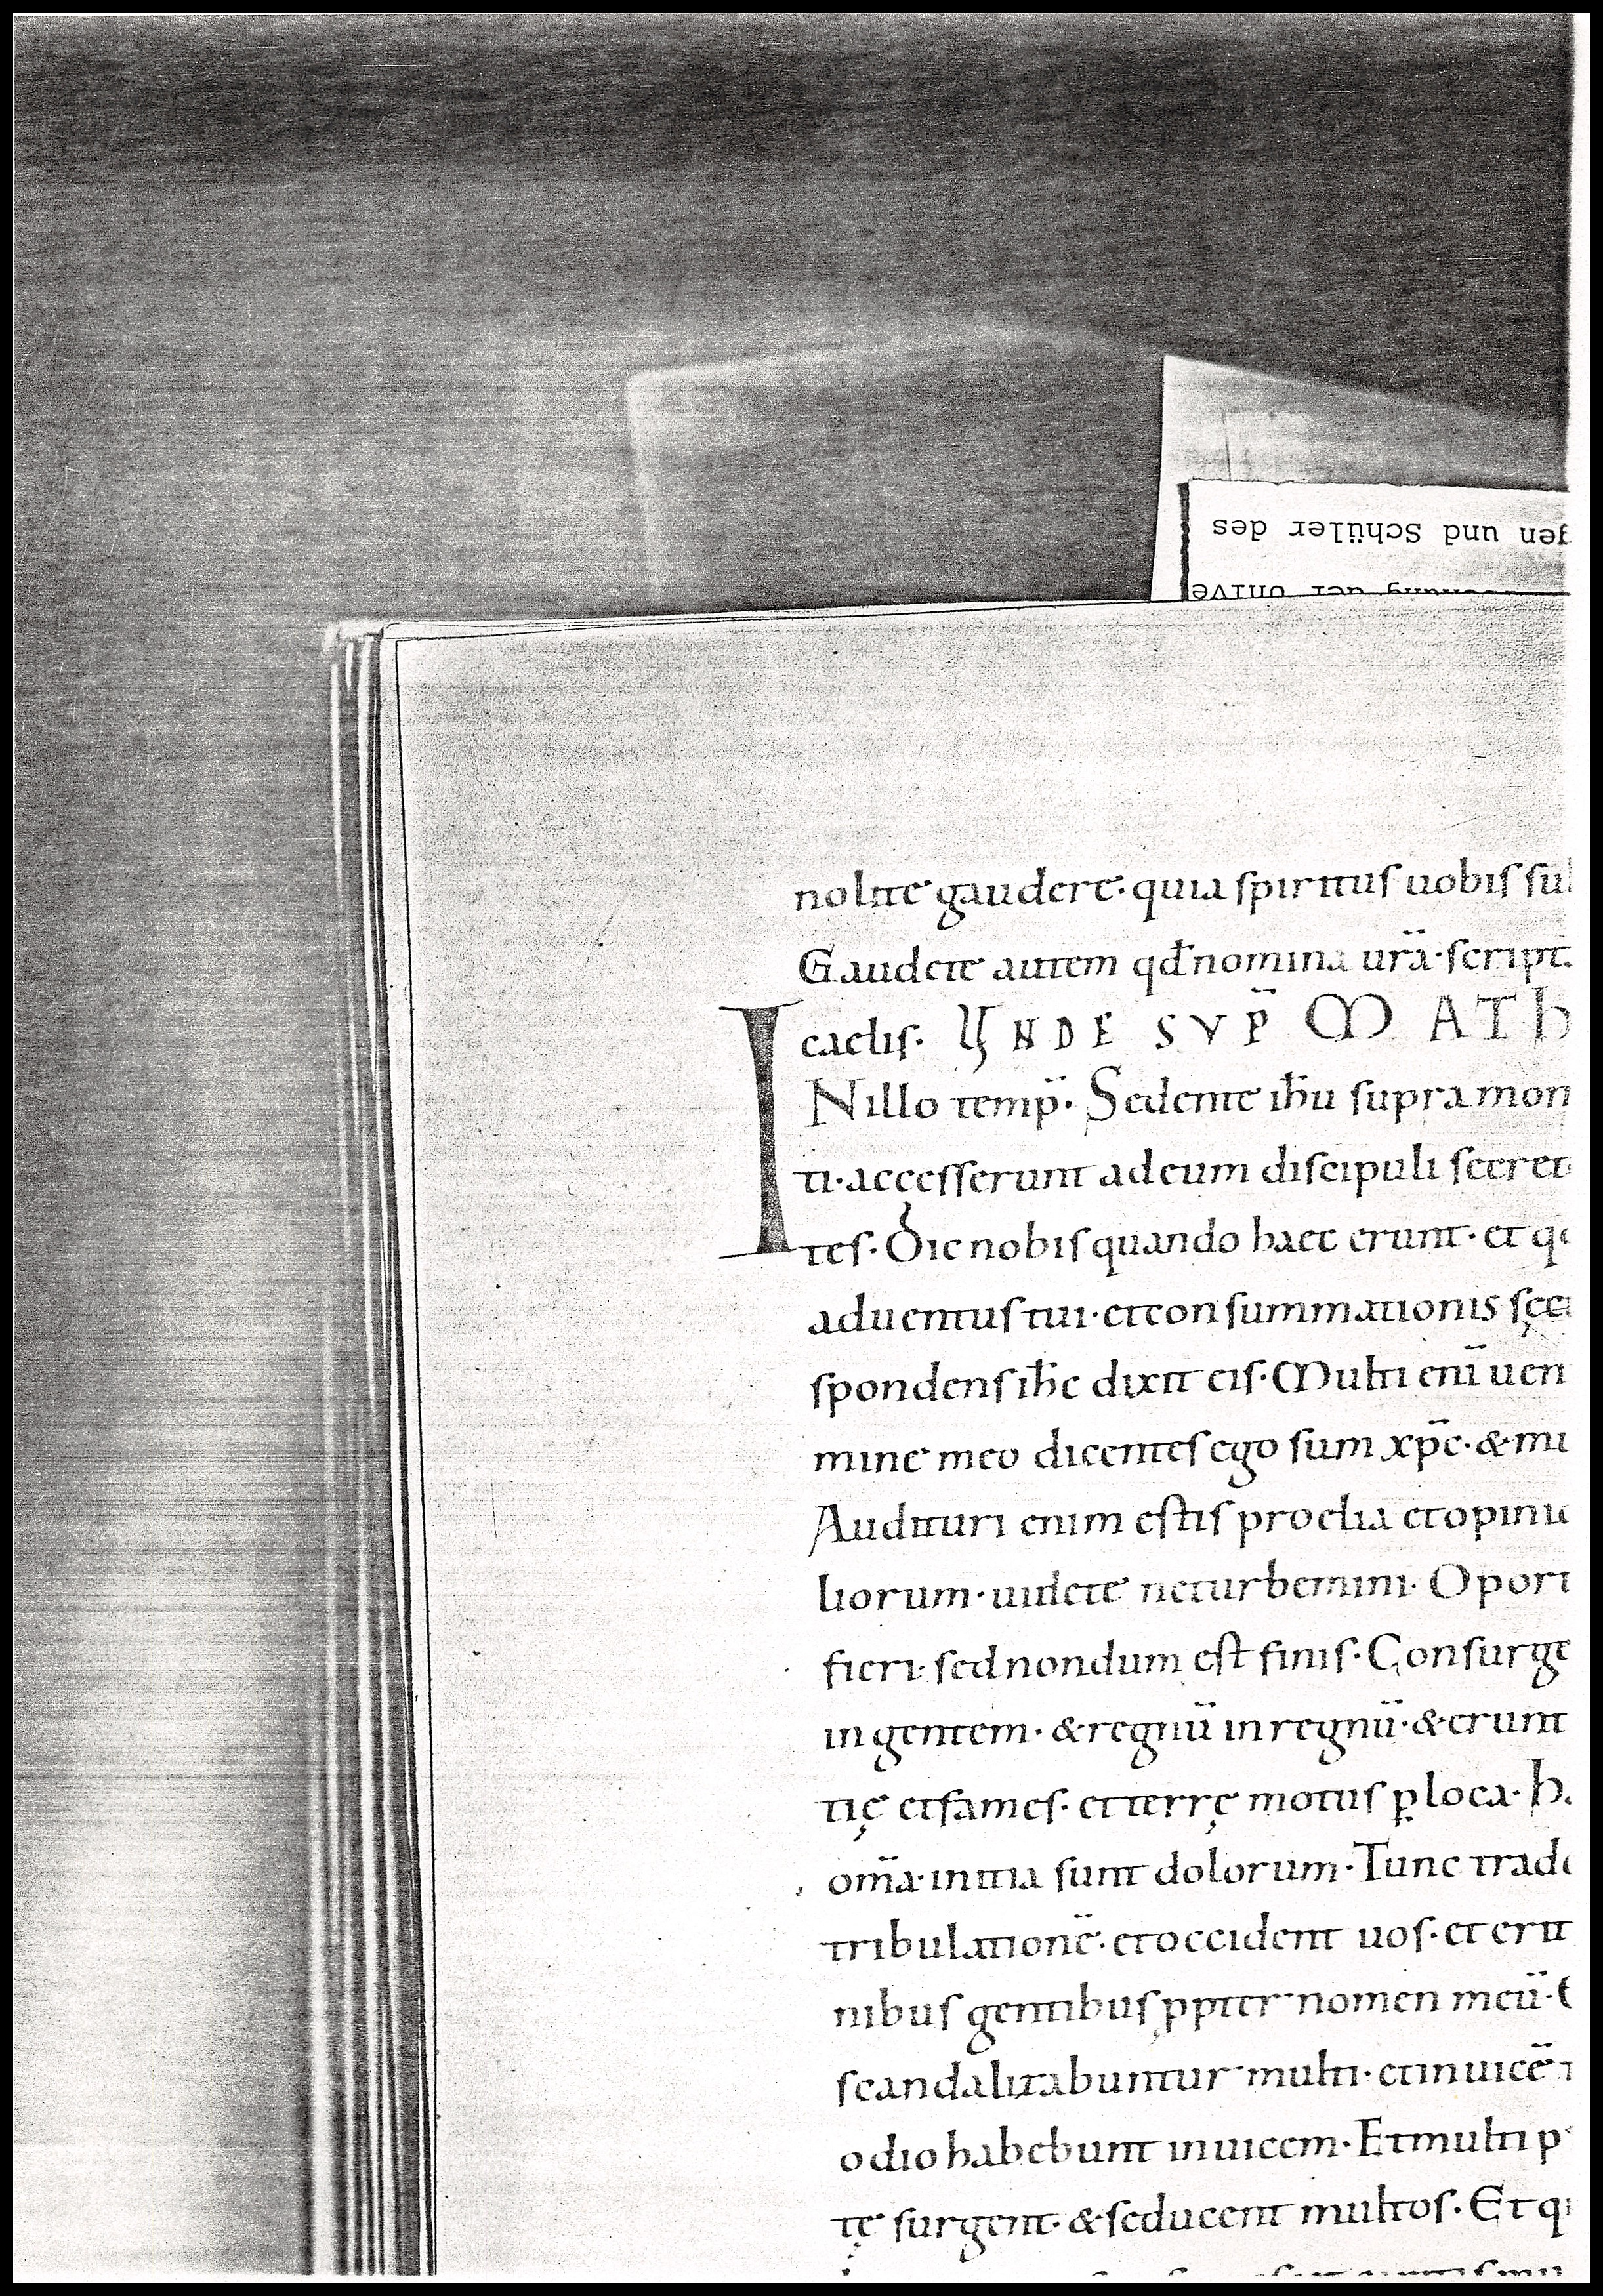 gen und Schüler des
nolite gaudere· quia spiritus uobis su
Gaudete autem qđ nomina ur̄a· script
caelis· UNDE SVP̄ MATH
INillo temp̄· Sedente ihu supra mon
ti· accesserunt ad eum discipuli secret
tes· Dic nobis quando haec erunt· et q
aduentus tui· et consummationis sęc
spondens ihc dixit eis· Multi enī uen
mine meo dicentes ego sum xp̄c· & m
Audituri enim estis proelia et opini
liorum· uidete ne turbemini· Oport
fieri· sed nondum est finis· Consurge
in gentem· & regnū in regnū· & erunt
tię et fames· et terrę motus ꝑ loca· h
om̄a· initia sunt dolorum· Tunc trad
tribulationē· et occident uos· et erit
nibus gentibus ꝓpter nomen meū·
scandalizabuntur multi· et inuicē
odio habebunt inuicem· Et multi p
tę surgent· & seducent multos· Et q